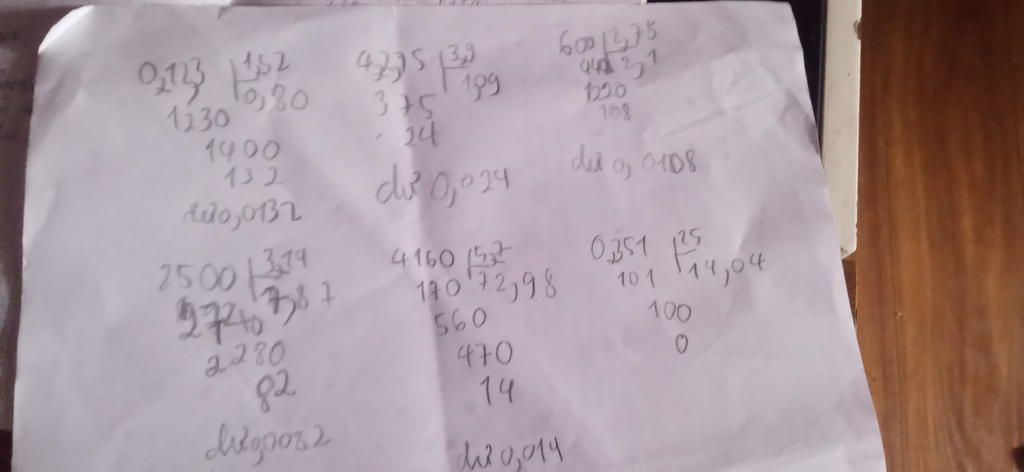 0,123 1,52
1230 0,80
1400
132
dư 0,0132
42,75 3,9
375 1,09
24
dư 0,024
600 2,78
2,1
1220
108
dư 0,0108
2500 3,14
7,87
2280
82
dư 0,0082
4160 5,7
170 72,98
560
470
14
dư 0,014
0,351 25
101 14,04
100
0